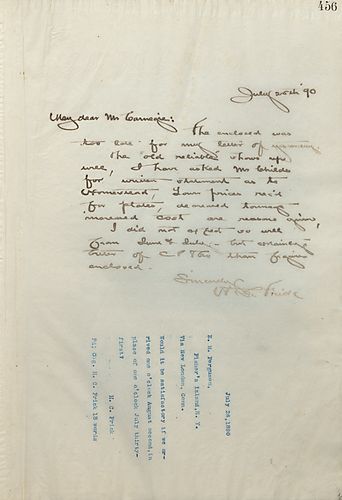 456
July 26th '90
My dear Mr Carnegie:
The enclosed was
too late for my letter of
The "old reliable" shows up
well, I have asked Mr Childs
for written statement as to
Homestead. Low prices rec'd
for plates, decreased tonnage
increased cost are reasons given,
I did not expect so well
from June & July - but
order of C P Co than figures
enclosed.
Sincerely
H. C. Frick
July 26, 1890
E. M. Ferguson,
Fisher's Island, N. Y.
Via New London, Conn.
Would it be satisfactory if we ar-
rived one o'clock August second, in
place of one o'clock July thirty-
first?
H. C. Frick
Pd: Chg. H. C. Frick 18 words